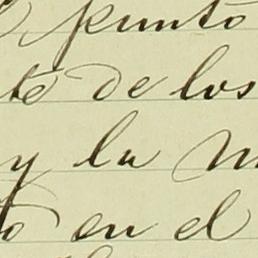 punto
te de los
y la
en el